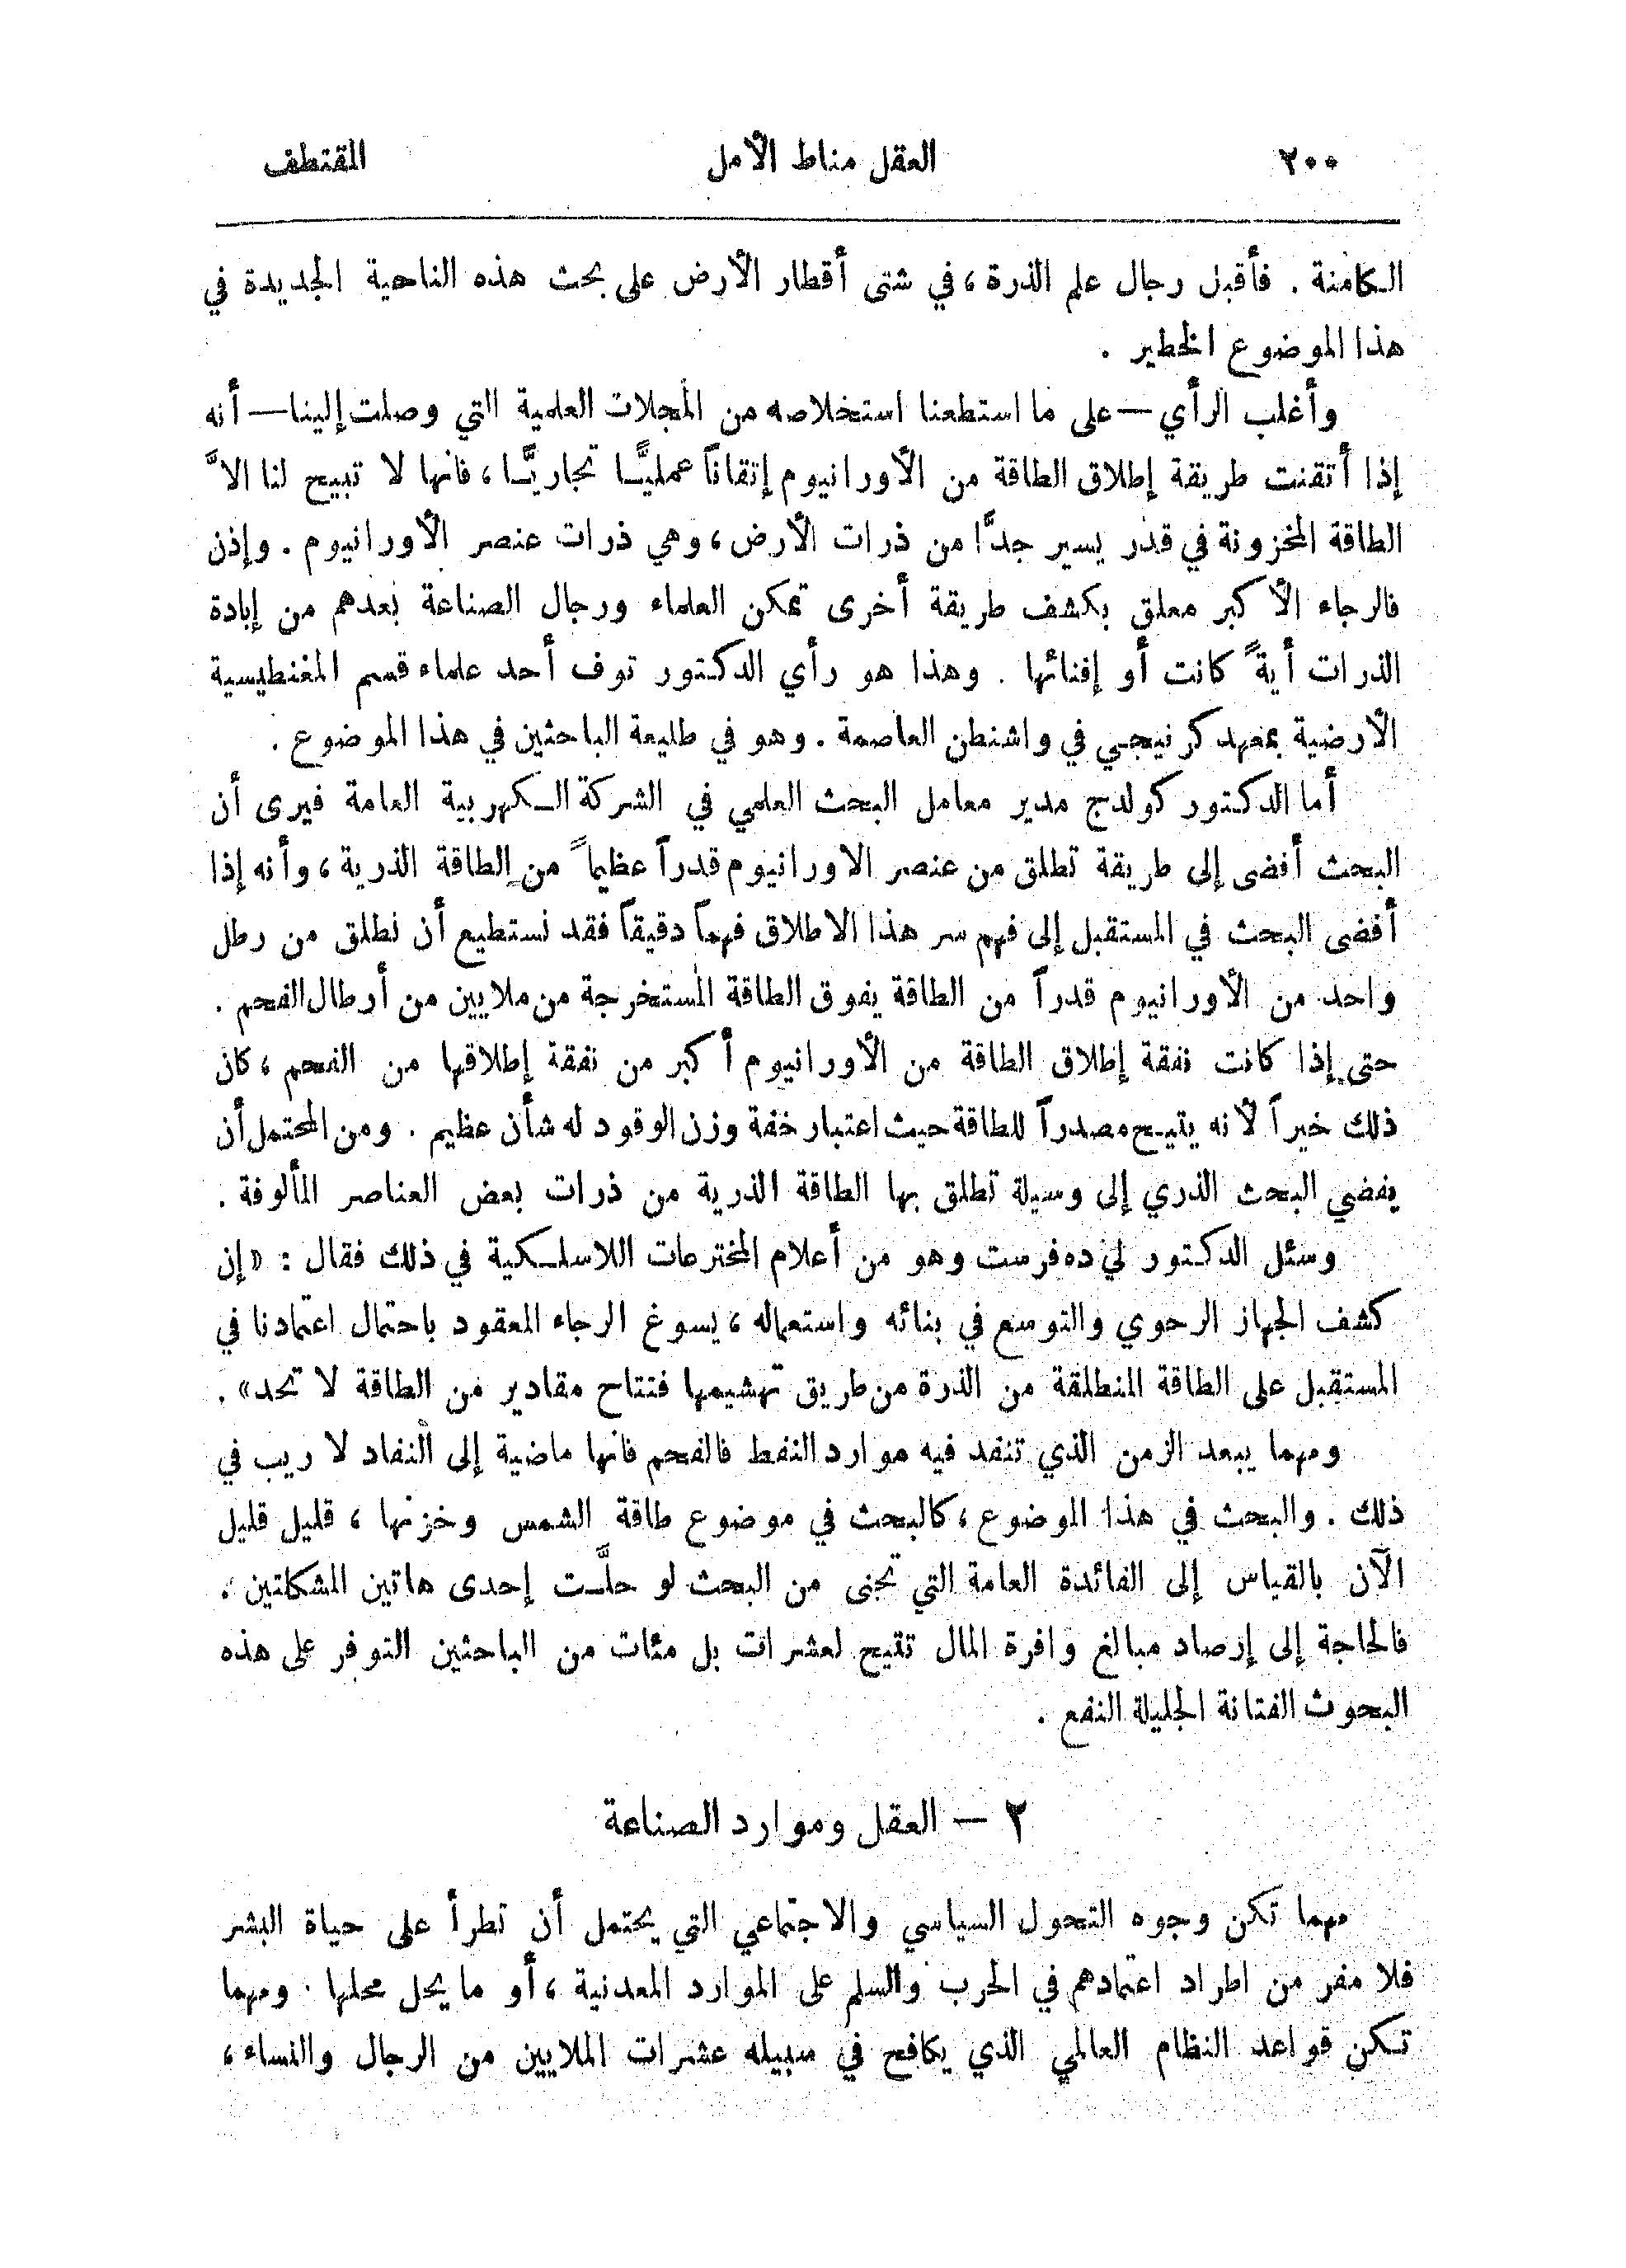 ٢٠٠ العقل مناط الأمل المقتطف
الكامنة . فأقبل رجال علم الذرة ، في شتى أقطار الأرض على بحث هذه الناحية الجديدة في
هذا الموضوع الخطير .
وأغلب الرأي — على ما استطعنا استخلاصه من المجلات العلمية التي وصلت إلينا — أنه
إذا أتقنت طريقة إطلاق الطاقة من الأورانيوم إتقاناً عمليًّا تجاريًّا ، فانها لا تبيح لنا الاَّ
الطاقة المخزونة في قدر يسير جدًّا من ذرات الأرض ، وهي ذرات عنصر الأورانيوم . وإذن
فالرجاء الأكبر معلق بكشف طريقة أخرى تمكن العلماء ورجال الصناعة بعدهم من إبادة
الذرات أيةً كانت أو إفنائها . وهذا هو رأي الدكتور توف أحد علماء قسم المغنطيسية
الأرضية بمعهد كرنيجي في واشنطن العاصمة . وهو في طليعة الباحثين في هذا الموضوع .
أما الدكتور كولدج مدير معامل البحث العلمي في الشركة الكهربية العامة فيرى أن
البحث أفضى إلى طريقة تطلق من عنصر الاورانيوم قدراً عظيماً من الطاقة الذرية ، وأنه إذا
أفضى البحث في المستقبل إلى فهم سر هذا الاطلاق فهماً دقيقاً فقد نستطيع أن نطلق من رطل
واحد من الأورانيوم قدراً من الطاقة يفوق الطاقة المستخرجة من ملايين من أرطال الفحم .
حتى إذا كانت نفقة إطلاق الطاقة من الأورانيوم أكبر من نفقة إطلاقها من الفحم ، كان
ذلك خيراً لأنه يتيح مصدراً للطاقة حيث اعتبار خفة وزن الوقود له شأن عظيم . ومن المحتمل أن
يفضي البحث الذري إلى وسيلة تطلق بها الطاقة الذرية من ذرات بعض العناصر المألوفة .
وسئل الدكتور لي ده فرست وهو من أعلام المخترعات اللاسلكية في ذلك فقال : «إن
كشف الجهاز الرحوي والتوسع في بنائه واستعماله ، يسوغ الرجاء المعقود باحتمال اعتمادنا في
المستقبل على الطاقة المنطلقة من الذرة من طريق تهشيمها فتتاح مقادير من الطاقة لا تحد» .
ومهما يبعد الزمن الذي تنفد فيه موارد النفط فالفحم فانها ماضية إلى النفاد لا ريب في
ذلك . والبحث في هذا الموضوع ، كالبحث في موضوع طاقة الشمس وخزنها ، قليل قليل
الآن بالقياس إلى الفائدة العامة التي تجنى من البحث لو حلَّت إحدى هاتين المشكلتين .
فالحاجة إلى إرصاد مبالغ وافرة المال تتيح لعشرات بل مئات من الباحثين التوفر على هذه
البحوث الفتانة الجليلة النفع .
٢ — العقل وموارد الصناعة
مهما تكن وجوه التحول السياسي والاجتماعي التي يحتمل أن تطرأ على حياة البشر
فلا مفر من اطراد اعتمادهم في الحرب والسلم على الموارد المعدنية ، أو ما يحل محلها . ومهما
تكن قواعد النظام العالمي الذي يكافح في سبيله عشرات الملايين من الرجال والنساء ،